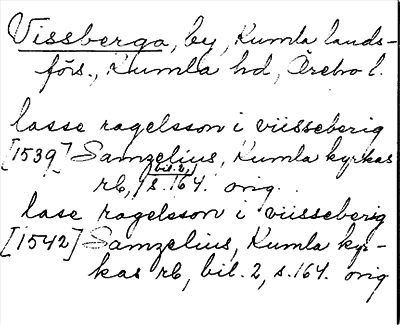 Vissberga, by, Kumla lands-
förs., Kumla hd, Örebro l.
lasse ragelsson i viisseberig
[1539] Samzelius, Kumla kyrkas
rb, bil. 2, s. 164. orig.
lase ragelsson i viisseberig
[1542] Samzelius, Kumla kyr-
kas rb, bil. 2, s. 164. orig